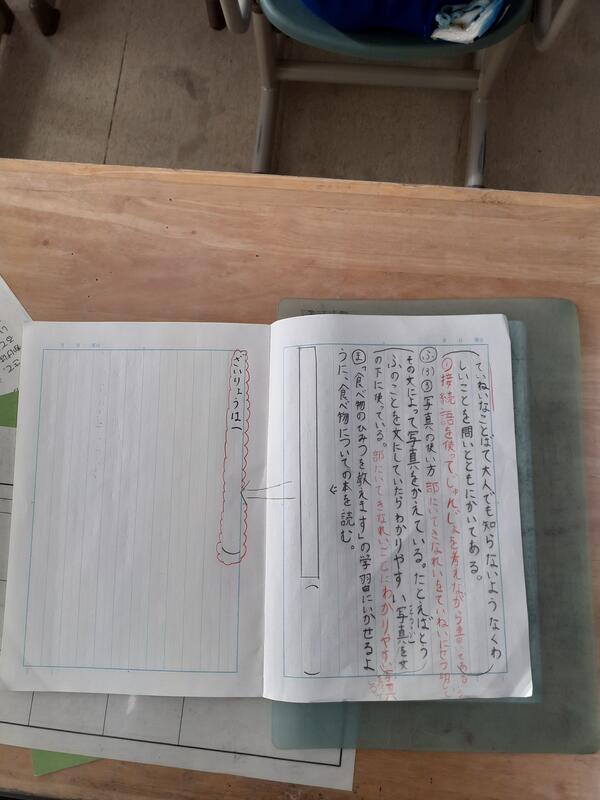 ていねいなことばで大人でも知らないようなくわ
しいことを問いとともにかいてある。
①接続語を使ってじゅんじょを考えながら書いてある
ふ(3)③写真の使い方
部にいてきなれいをていねいにせつ明
その文によって写真をかえている。たとえばとう
ふのことを文にしていたらわかりやすい写真を文
の下に使っている。
わかりやすい写真
ま「食べ物のひみつを教えます」の学習にいかせるよ
うに、食べ物についての本を読む。
ごいりょうは